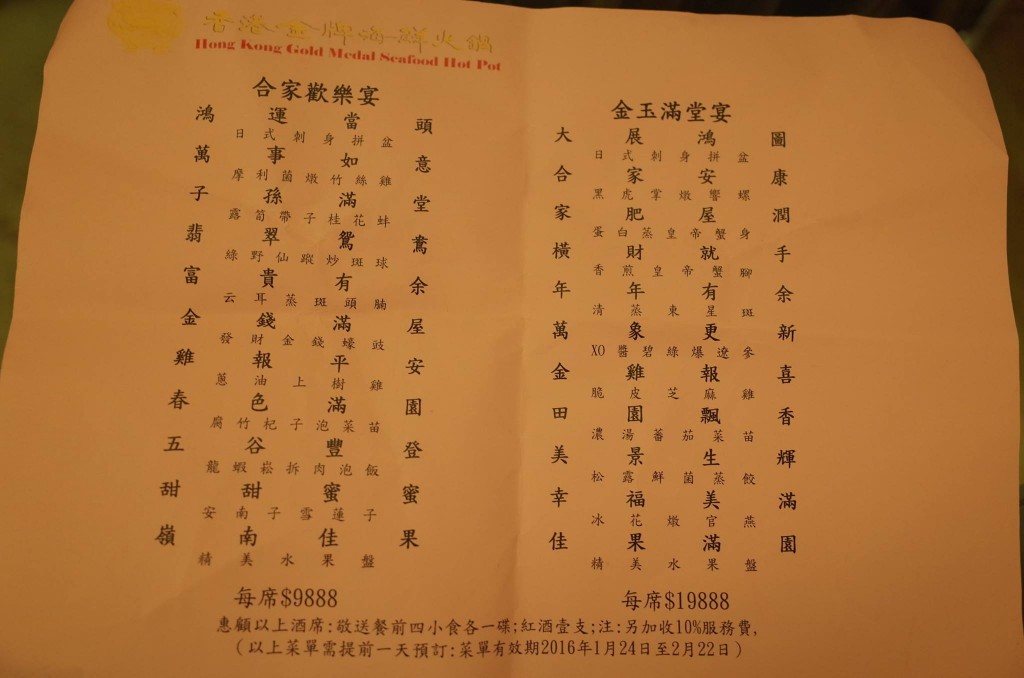 香港金牌海鮮火鍋
Hong Kong Gold Medal Seafood Hot Pot
合家歡樂宴
鴻運當頭
日式刺身拼盆
萬事如意
摩利菌燉竹絲雞
子孫滿堂
露筍帶子桂花蚌
翡翠鴛鴦
綠野仙蹤炒斑球
富貴有余
云耳蒸斑頭腩
金錢滿屋
發財金錢蠔豉
雞報平安
蔥油上樹雞
春色滿園
腐竹杞子泡菜苗
五谷豐登
龍蝦崧拆肉泡飯
甜甜蜜蜜
安南子雪蓮子
嶺南佳果
精美水果盤
每席$9888
金玉滿堂宴
大展鴻圖
日式刺身拼盆
合家安康
黑虎掌燉響螺
家肥屋潤
蛋白蒸皇帝蟹身
橫財就手
香煎皇帝蟹腳
年年有余
清蒸東星斑
萬象更新
XO醬碧綠爆遼參
金雞報喜
脆皮芝麻雞
田園飄香
濃湯蕃茄菜苗
美景生輝
松露鮮菌蒸餃
幸福美滿
冰花燉官燕
佳果滿園
精美水果盤
每席$19888
惠顧以上酒席:敬送餐前四小食各一碟;紅酒壹支;注:另加收10%服務費,
(以上菜單需提前一天預訂:菜單有效期2016年1月24日至2月22日)